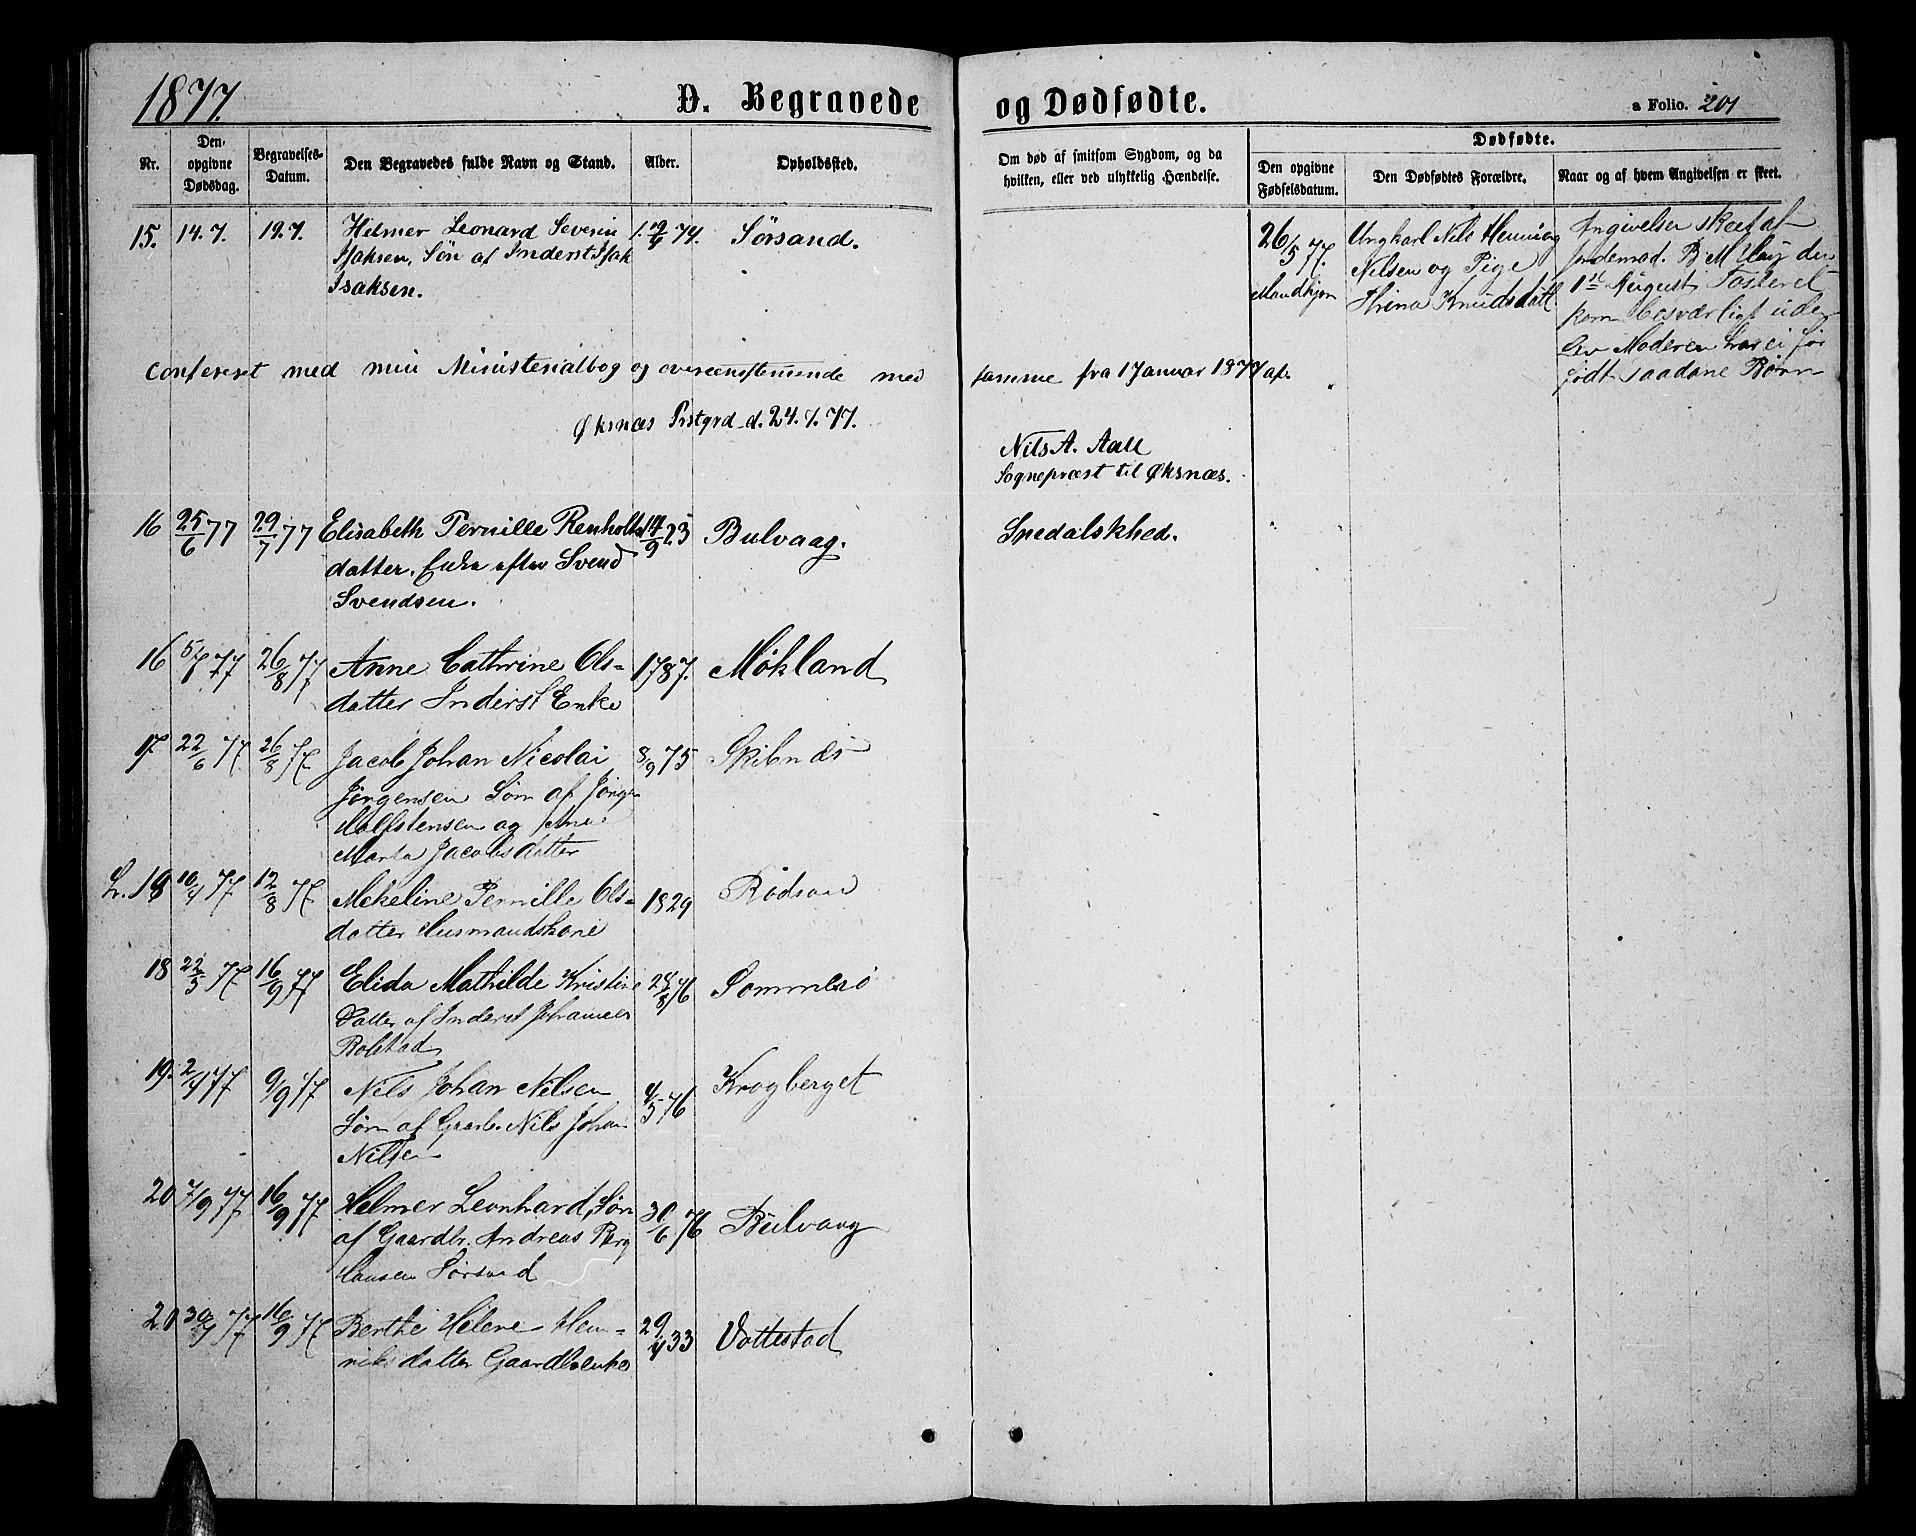 1877.
D. Begravede og Dødfødte.
a Folio. 201
Nr.
Den opgivne Dødsdag.
Begravelses-Datum.
Den Begravedes fulde Navn og Stand.
Alder.
Opholdsted.
Om død af smitsom Sygdom, og da hvilken, eller ved ulykkelig Hændelse.
Dødfødte.
Den opgivne Fødselsdatum.
Den Dødfødtes Forældre.
Naar og af hvem Angivelsen er skeet.
15. 14.7. 19.7. Helmer Leonard Severin 74. Sörsand.
Isaksen, Sön af Inderst Isak
Isaksen.
26/5 77. Mandkjøn
Ungkarl Nils Henning
Nilsen og Pige
Knudsdatt
Angivelsen skeet af
Jordemod. den
1ste August Fosteret
kom besværligt uden
Liv Moderen har ei før
født saadane Børn
Confereret med min Ministerialbog og overeenstemmende med samme fra 1 Januar 1877 af.
Øksnæs Prstgrd d. 24.7.77.
Nils A. Aall
Sognepræst til Øksnæs.
16 25/6 77 29/7 77 Elisabeth Pernille Renholts 17/9 23 Bulvaag. Spedalskhed.
datter. Enke efter Svend
Svendsen.
16 5/7 77 26/8 77 Anne Cathrine Ols= 1787. Møkland
datter Inderst Enke
17 22/6 77 26/8 77 Jacob Johan Nicolai 8/9 75 Skibnæs
Jørgensen Søn af Jørgen
og Ane
Marta Jacobsdatter
L. 18 10/4 77 12/8 77 Mekeline Pernille Ols= 1829 Rødsan
datter Husmandskone
18 22/5 77 16/9 77 Elida Mathilde Kristine 76 Sommerø
Datter af Inderst Johannes
Rolstad
19. 2/4 77 9/9 77 Nils Johan Nilsen 4/5 76 Krogberget
Søn af Gaarb. Nils Johan
Nilsen
20 7/9 77 16/9 77 Helmer Leonhard, Søn 30/6 76 Bulvaag
af Gaardbr. Andreas Berg
Hansen Sørsand
20 30/4 77 16/9 77 Berthe Helene Hen= 29/4 33 Vottestad
riksdatter Gaardbenke